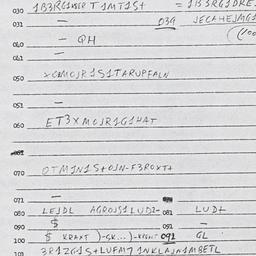 030 1B3RG1WSER T 1MT1S+ = 1B3RG1DRE
031 — 039 JECAHEJMG1
040 — QH
041 —
050 XCNMOJR1S1TARUPFALN
051 —
060 ET3XMOJR1G1HAT
070 OTM1N1S+OJN-F3ROXT+
071 —
080 LEJDL AGROJS1LUD2- 081 LUD+
090 $ 091 —
100 $ KRAXT )-GK...)- 091 GL
101 3R1ZG1S+LUFAM7 1NKLAJN1MBETL